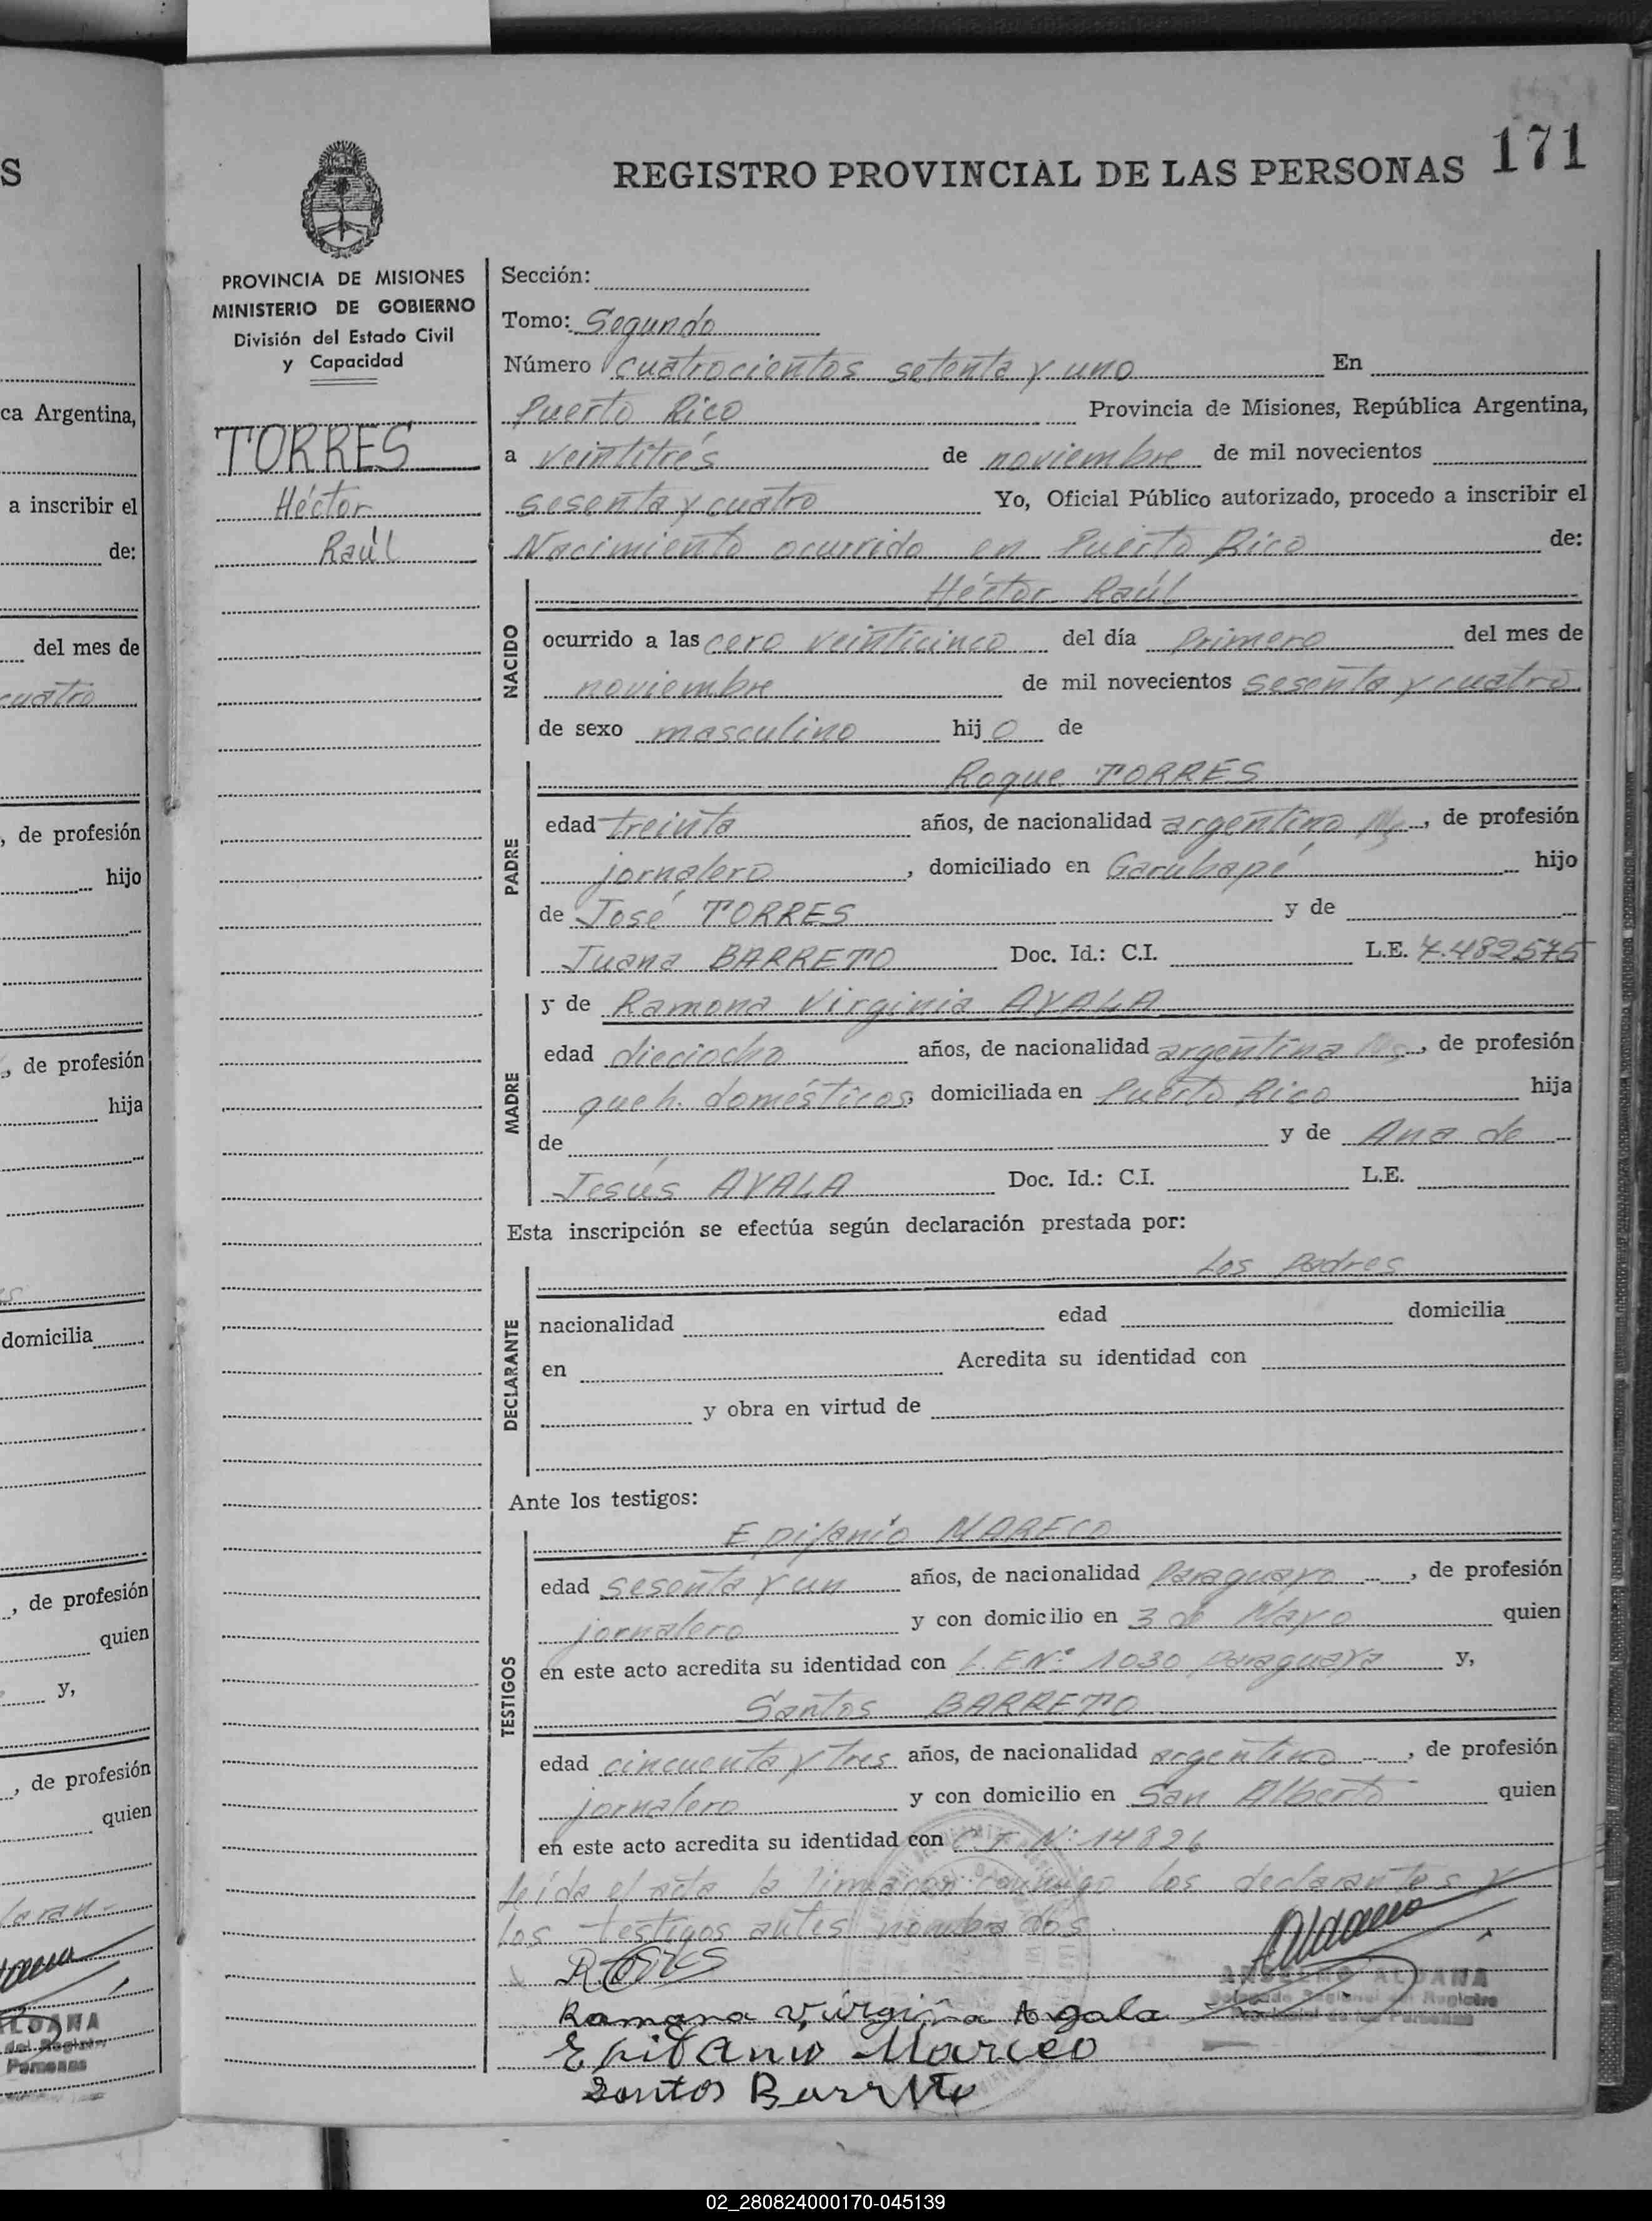 S
ca Argentina,
a inscribir el
de:
del mes de
cuatro
, de profesión
hijo
, de profesión
hija
domicilia
, de profesión
quien
y,
, de profesión
quien
REGISTRO PROVINCIAL DE LAS PERSONAS 171
PROVINCIA DE MISIONES
MINISTERIO DE GOBIERNO
División del Estado Civil
y Capacidad
TORRES
Héctor
Raúl
Sección:
Tomo: Segundo
Número cuatrocientos setenta y uno En
Puerto Rico Provincia de Misiones, República Argentina,
a veintitrés de noviembre de mil novecientos
sesenta y cuatro Yo, Oficial Público autorizado, procedo a inscribir el
Nacimiento ocurrido en Puerto Rico de:
NACIDO
Héctor Raúl
ocurrido a las cero veinticinco del día primero del mes de
noviembre de mil novecientos sesenta y cuatro
de sexo masculino hijo de
PADRE
Roque TORRES
edad treinta años, de nacionalidad argentino Ms, de profesión
jornalero, domiciliado en Garuhapé hijo
de José TORRES y de
Juana BARRETO Doc. Id.: C.I. L.E. 7.482575
MADRE
y de Ramona Virginia AYALA
edad dieciocho años, de nacionalidad argentina Ms, de profesión
queh. domésticos, domiciliada en Puerto Rico hija
de y de Ana de
Jesús AYALA Doc. Id.: C.I. L.E.
Esta inscripción se efectúa según declaración prestada por:
DECLARANTE
Los padres
nacionalidad edad domicilia
en Acredita su identidad con
y obra en virtud de
Ante los testigos:
TESTIGOS
Epifanio MARECO
edad sesenta y un años, de nacionalidad paraguayo, de profesión
jornalero y con domicilio en 3 de Mayo quien
en este acto acredita su identidad con L.E Nº 1030 paraguaya y,
Santos BARRETO
edad cincuenta y tres años, de nacionalidad argentino, de profesión
jornalero y con domicilio en San Alberto quien
en este acto acredita su identidad con C.I. Nº 14826
leída el acta la firmaron conmigo los declarantes y
los testigos antes nombrados.
Aldana
ANSELMO ALDANA
Delegado Regional del Registro
Provincial de las Personas
Ramona Virginia Ayala
Epifanio Mareco
Santos Barreto
02_280824000170-045139